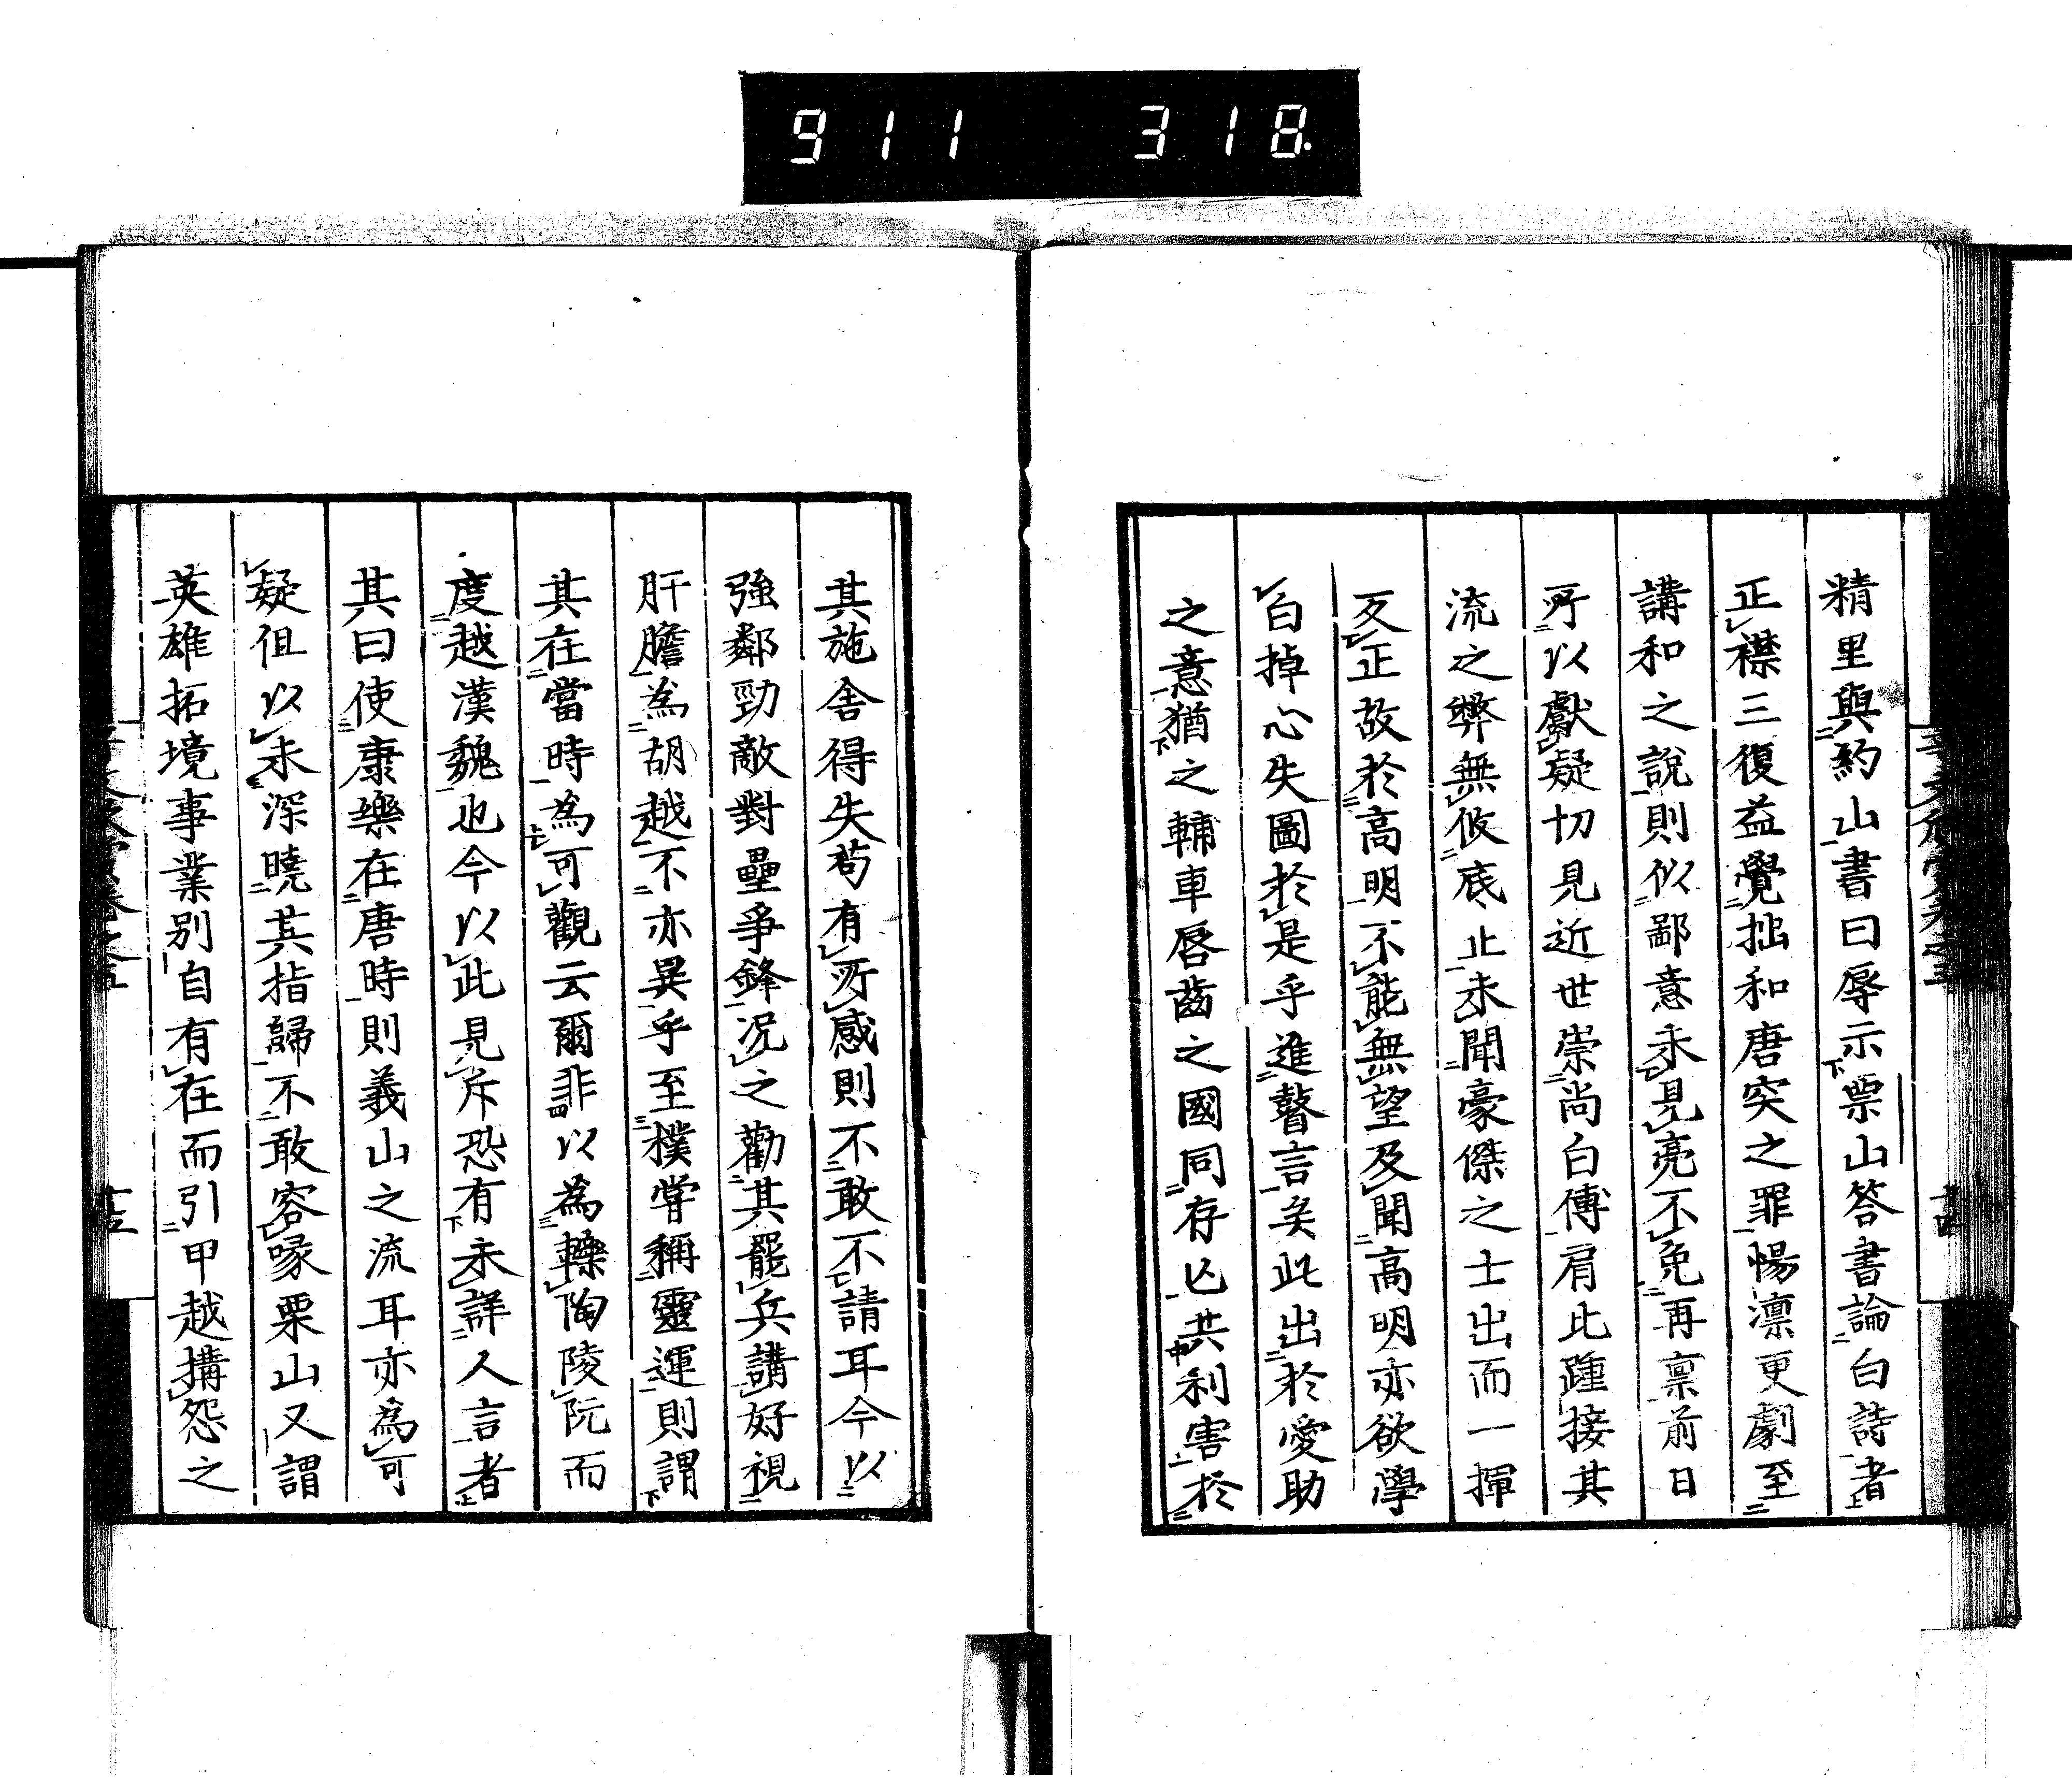 911 318.
精里與約山書曰辱示栗山答書論白詩者
正襟三復益覺拙和唐突之罪惕凛更劇至
講和之說則似鄙意未見亮不免再禀前日
所以獻疑切見近世崇尚白傅肩比踵接其
流之弊無攸底止未聞豪傑之士出而一揮
反正故於高明不能無望及聞高明亦欲學
白掉心失圖於是乎進瞽言矣此出於愛助
之意猶之輔車唇齒之國同存亡共利害於
其施舍得失苟有所感則不敢不請耳今以
強鄰勁敵對壘爭鋒況之勸其罷兵講好視
肝膽為胡越不亦異乎至樸甞稱靈運則謂
其在當時為可觀云爾非以為轢陶陵阮而
度越漢魏也今以此見斥恐有未詳人言者
其曰使康樂在唐時則義山之流耳亦為可
疑但以未深曉其指歸不敢容喙栗山又謂
英雄拓境事業別自有在而引甲越搆怨之